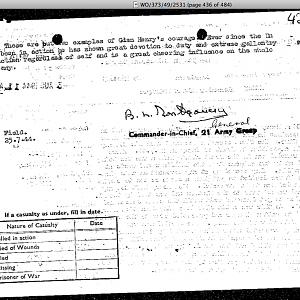 WO/373/49/2531 (page 436 of 484)
These are but two examples of Gdsn Henry's courage ever since the Bn
been in action he has shown great devotion to duty and extreme gallantry
action regardless of self and is a great cheering influence on the whole
any.
Field.
25.7.44.
B. L. Montgomery
General
Commander-in-Chief, 21 Army Group
If a casualty as under, fill in date.
Nature of Casualty Date
illed in action
ied of Wounds
ied
issing
risoner of War